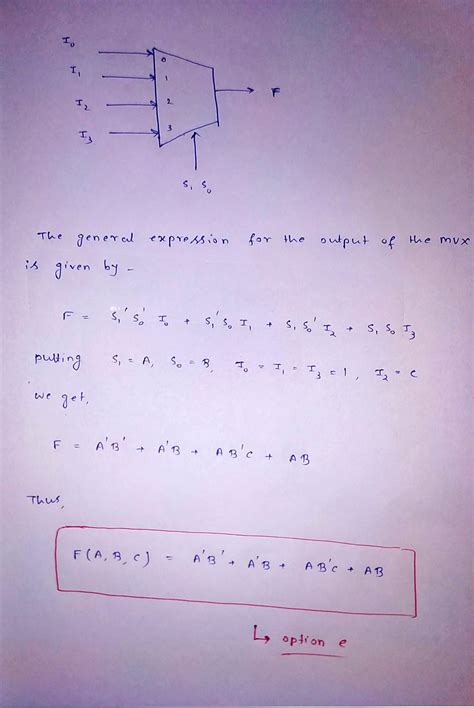 I₀
0
I₁
1
F
I₂
2
I₃
3
S₁ S₀
The general expression for the output of the mux
is given by -
F = S₁' S₀' I₀ + S₁' S₀ I₁ + S₁ S₀' I₂ + S₁ S₀ I₃
putting S₁ = A, S₀ = B, I₀ = I₁ = I₃ = 1, I₂ = C
we get,
F = A'B' + A'B + AB'C + AB
Thus,
F(A, B, C) = A'B' + A'B + AB'C + AB
↳ option e